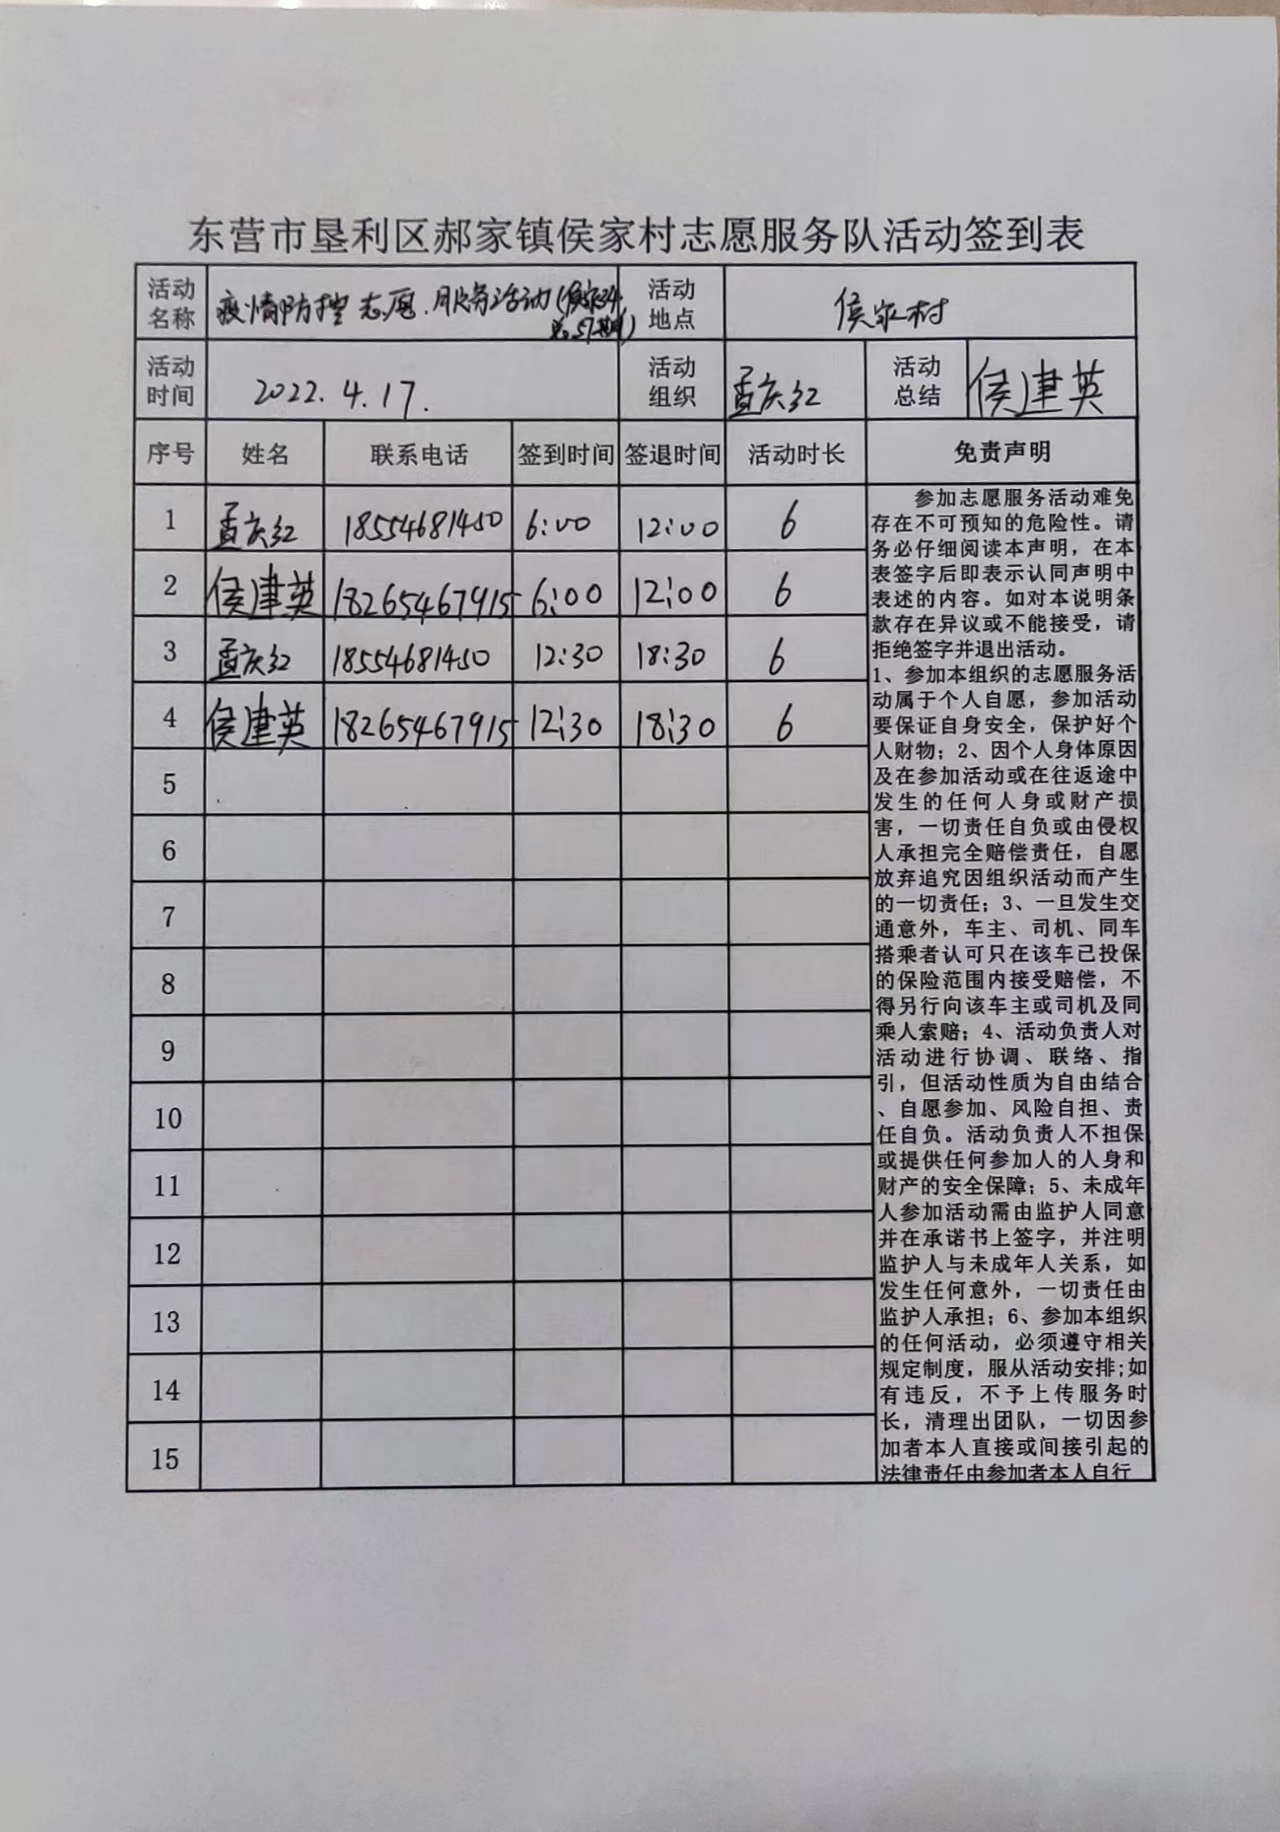 东营市垦利区郝家镇侯家村志愿服务队活动签到表
活动名称 疫情防控志愿服务活动 活动地点 侯家村
活动时间 2022.4.17. 活动组织 孟庆红 活动总结 侯建英
序号 姓名 联系电话 签到时间 签退时间 活动时长 免责声明
1 孟庆红 18554681450 6:00 12:00 6
2 侯建英 18265467915 6:00 12:00 6
3 孟庆红 18554681450 12:30 18:30 6
4 侯建英 18265467915 12:30 18:30 6
5
6
7
8
9
10
11
12
13
14
15
参加志愿服务活动难免
存在不可预知的危险性。请
务必仔细阅读本声明，在本
表签字后即表示认同声明中
表述的内容。如对本说明条
款存在异议或不能接受，请
拒绝签字并退出活动。
1、参加本组织的志愿服务活
动属于个人自愿，参加活动
要保证自身安全，保护好个
人财物；2、因个人身体原因
及在参加活动或在往返途中
发生的任何人身或财产损
害，一切责任自负或由侵权
人承担完全赔偿责任，自愿
放弃追究因组织活动而产生
的一切责任；3、一旦发生交
通意外，车主、司机、同车
搭乘者认可只在该车已投保
的保险范围内接受赔偿，不
得另行向该车主或司机及同
乘人索赔；4、活动负责人对
活动进行协调、联络、指
引，但活动性质为自由结合
、自愿参加、风险自担、责
任自负。活动负责人不担保
或提供任何参加人的人身和
财产的安全保障；5、未成年
人参加活动需由监护人同意
并在承诺书上签字，并注明
监护人与未成年人关系，如
发生任何意外，一切责任由
监护人承担；6、参加本组织
的任何活动，必须遵守相关
规定制度，服从活动安排;如
有违反，不予上传服务时
长，清理出团队，一切因参
加者本人直接或间接引起的
法律责任由参加者本人自行